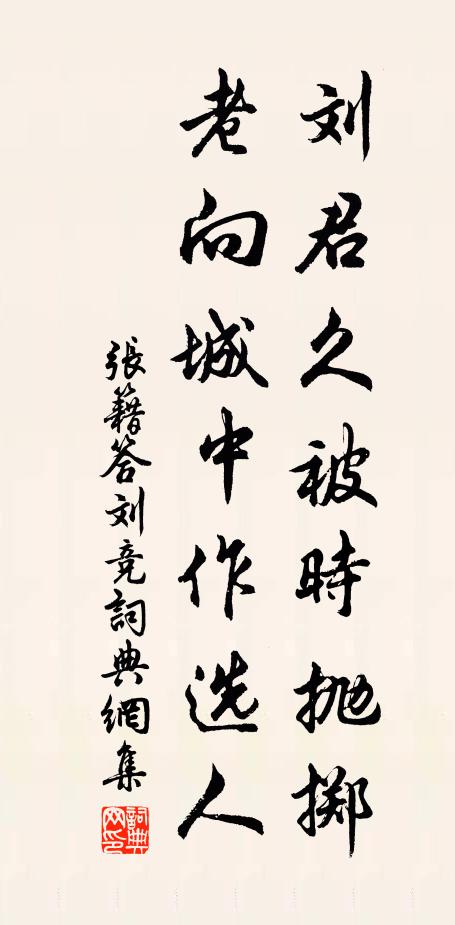 刘君久被時抛掷
老向城中作选人
張籍答刘竞詞典網集
詞典網印